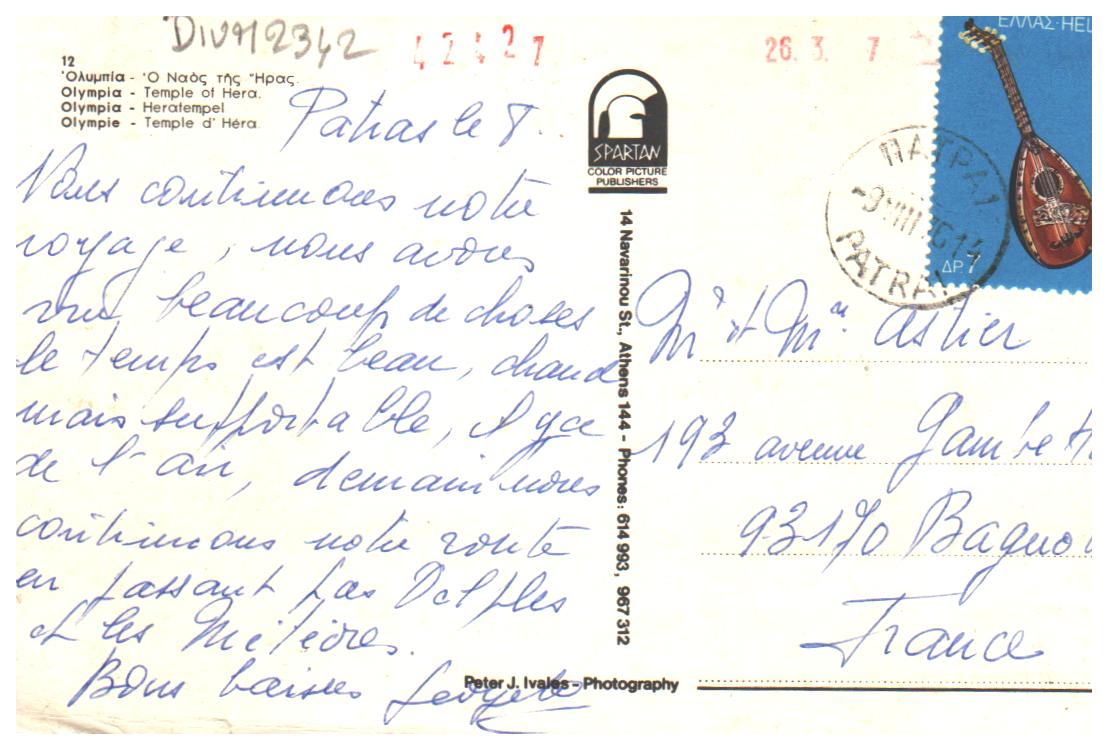 DIVM2342
42427
26.3. 7
ΕΛΛΑΣ-HEL
12
Ὀλυμπία - Ὁ Ναὸς τῆς Ἥρας.
Olympia - Temple of Hera.
Olympia - Heratempel
Olympie - Temple d' Héra.
Patras le 8.
Nous continuons notre
voyage, nous avons
vu beaucoup de choses
le temps est beau, chaud
mais supportable, il y a
de l'air, demain nous
continuons notre route
en passant par Delphes
et les Météores.
Bons baisers Georgette
SPARTAN
COLOR PICTURE
PUBLISHERS
14 Navarinou St., Athens 144 - Phones: 614 993, 967 312
Peter J. Ivales - Photography
ΠΑΤΡΑΙ
-9 VIII 76 14
PATRAI
ΔΡ. 7
Mr et Me Astier
193 avenue Gambett
93170 Bagno
France